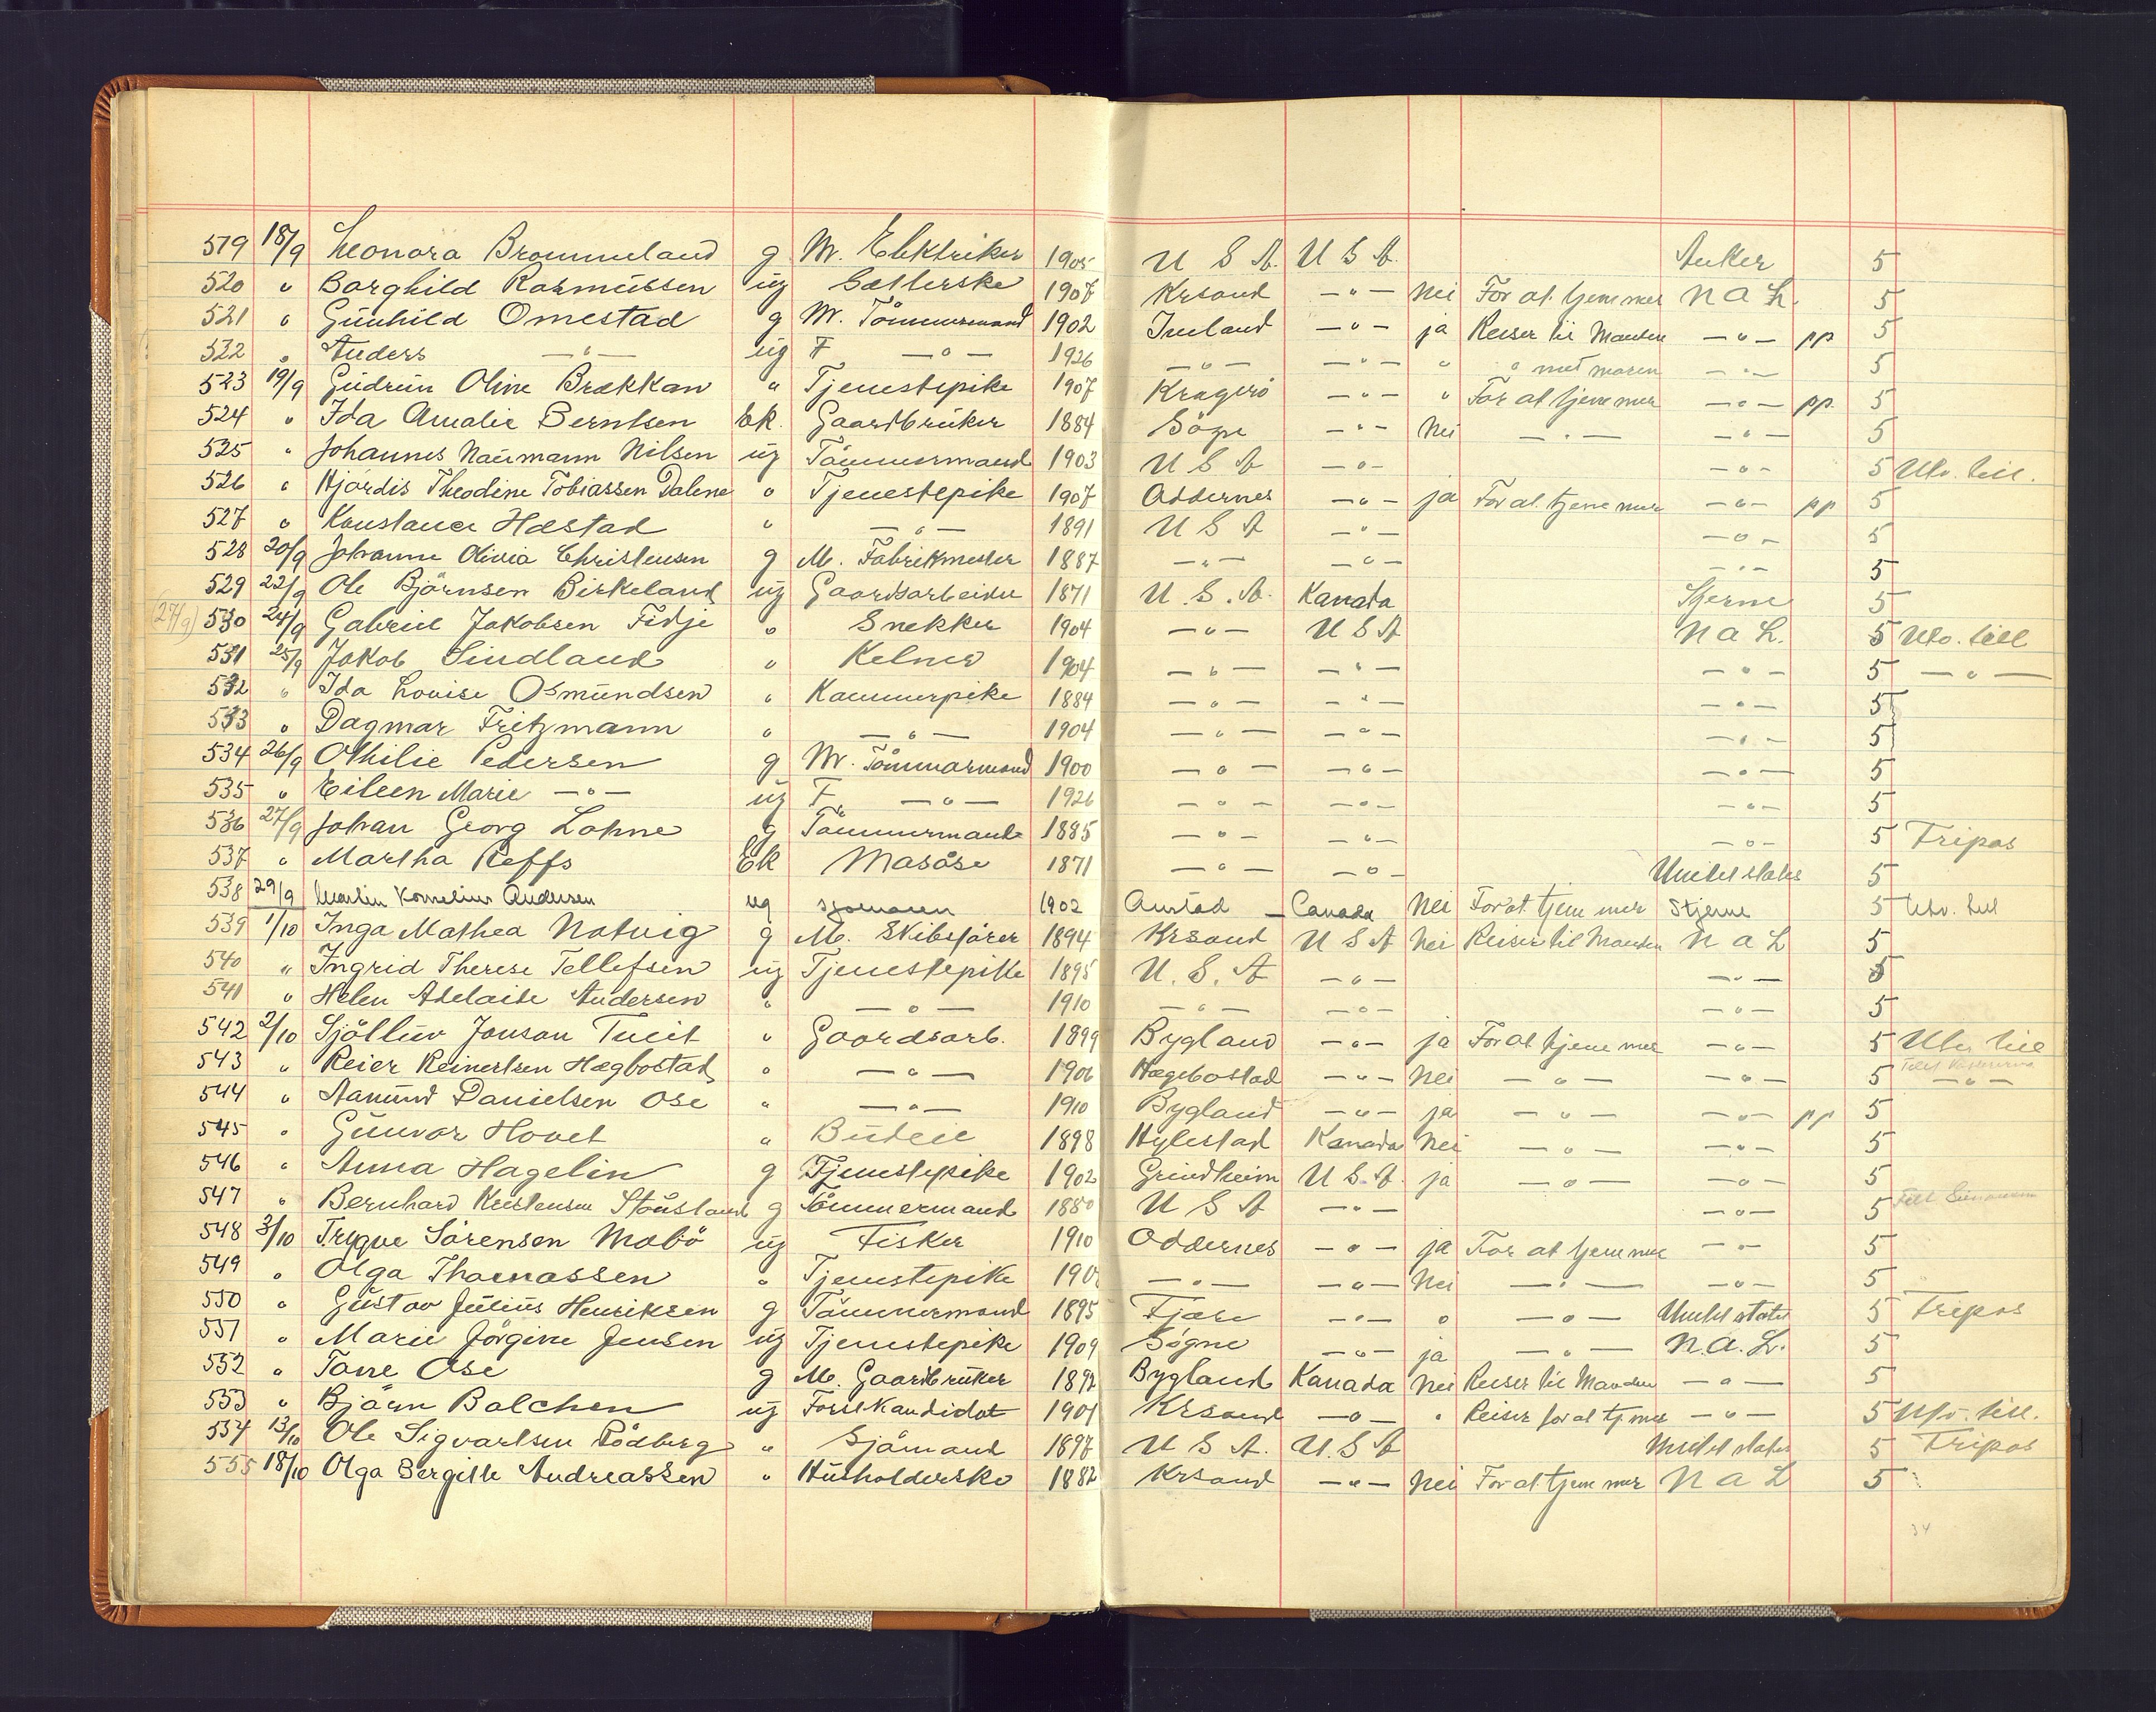 519 18/9 Leonora Brommeland g M. Elektriker 1905 U S A. U S A. Anker 5
520 " Borghild Rasmussen ug Sætterske 1907 Krsand —"— Nei For at tjene mer N A L. 5
521 " Gunhild Omestad g M. Tömmermand 1902 Iveland —"— ja Reiser til Manden —"— pp 5
522 " Anders —"— ug F —"— 1926 —"— —"— " " med moren —"— 5
523 19/9 Gudrun Oline Brækkan " Tjenestepike 1907 Kragerö —"— " For at tjene mer —"— pp. 5
524 " Ida Amalie Berntsen Ek. Gaardbruker 1884 Sögne —"— Nei —"— —"— 5
525 " Johannes Naumann Nilsen ug Tömmermand 1903 U S A —"— —"— 5 Utv. till.
526 " Hjördis Theodine Tobiassen Dalene " Tjenestepike 1907 Oddernes —"— ja For at tjene mer —"— pp 5
527 " Konstance Hæstad " —"— 1891 U S A —"— —"— 5
528 20/9 Johanne Olivia Christensen g M. Fabrikmester 1887 —"— —"— —"— 5
529 22/9 Ole Björnsen Birkeland ug Gaardsarbeider 1871 U. S. A. Kanada Stjerne 5
(27/9) 530 24/9 Gabriel Jakobsen Fidje " Snekker 1904 —"— U S A N A L. 5 Utv. till
531 25/9 Jakob Lindland " Kelner 1904 —"— —"— —"— 5 —"—
532 " Ida Louise Osmundsen " Kammerpike 1884 —"— —"— —"— 5
533 " Dagmar Fritzmann " —"— 1904 —"— —"— —"— 5
534 26/9 Othilie Pedersen g M. Tömmarmand 1900 —"— —"— —"— 5
535 " Eileen Marie —"— ug F —"— 1926 —"— —"— —"— 5
536 27/9 Johan Georg Lohne g Tömmermand 1885 —"— —"— —"— 5 Tripos
537 " Martha Reffs Ek Masöse 1871 —"— —"— United states 5
538 29/9 Martin Kornelius Andersen ug sjömann 1902 —Canada Nei For at tjene mer Stjerne 5 Utv. till
539 1/10 Inga Mathea Natvig g M. Skibsförer 1894 Krsand U S A Nei Reiser til Manden N A L 5
540 " Ingrid Therese Tellefsen ug Tjenestepike 1895 U. S. A —"— —"— 5
541 " Helen Adelaide Andersen " —"— 1910 —"— —"— —"— 5
542 2/10 Sjölluv Jonson Tveit " Gaardsarb. 1899 Bygland —"— ja For at tjene mer —"— 5 Utv. till
543 " Reier Reinertsen Hægbostad " —"— 1906 Hægebostad —"— Nei —"— —"— 5 —"—
544 " Aamund Danielsen Ose " —"— 1910 Bygland —"— ja —"— —"— pp 5
545 " Gunvor Hovet " Budeie 1898 Hylestad Kanada Nei —"— —"— 5
546 " Anna Hagelin g Tjenestepike 1902 Grindheim U S. A. ja —"— —"— 5
547 " Bernhard Kristensen Stöusland g Tömmermand 1880 U S A —"— —"— 5
548 3/10 Trygve Sörensen Mobö ug Fisker 1910 Oddernes —"— ja For at tjene mer —"— 5
549 " Olga Thomassen " Tjenestepike —"— —"— Nei —"— —"— 5
550 " Gustav Julius Henriksen g Tömmermand 1895 Fjære —"— " —"— United states 5 Tripos
551 " Marie Jörgine Jensen ug Tjenestepike 1909 Sögne —"— ja —"— N. A. L. 5
552 " Tone Ose g M. Gaardbruker 1892 Bygland Kanada Nei Reiser til Manden —"— 5
553 " Björn Balchen ug Forstkandidat 1901 Krsand —"— " Reiser for at tj mer —"— 5 Utv. till.
554 13/10 Ole Sigvartsen Rödberg " Sjömand 1897 U S A. U. S A United states 5 Tripos
555 18/10 Olga Bergitte Andreassen " Husholderske 1882 Krsand —"— Nei For at tjene mer N A L 5
34